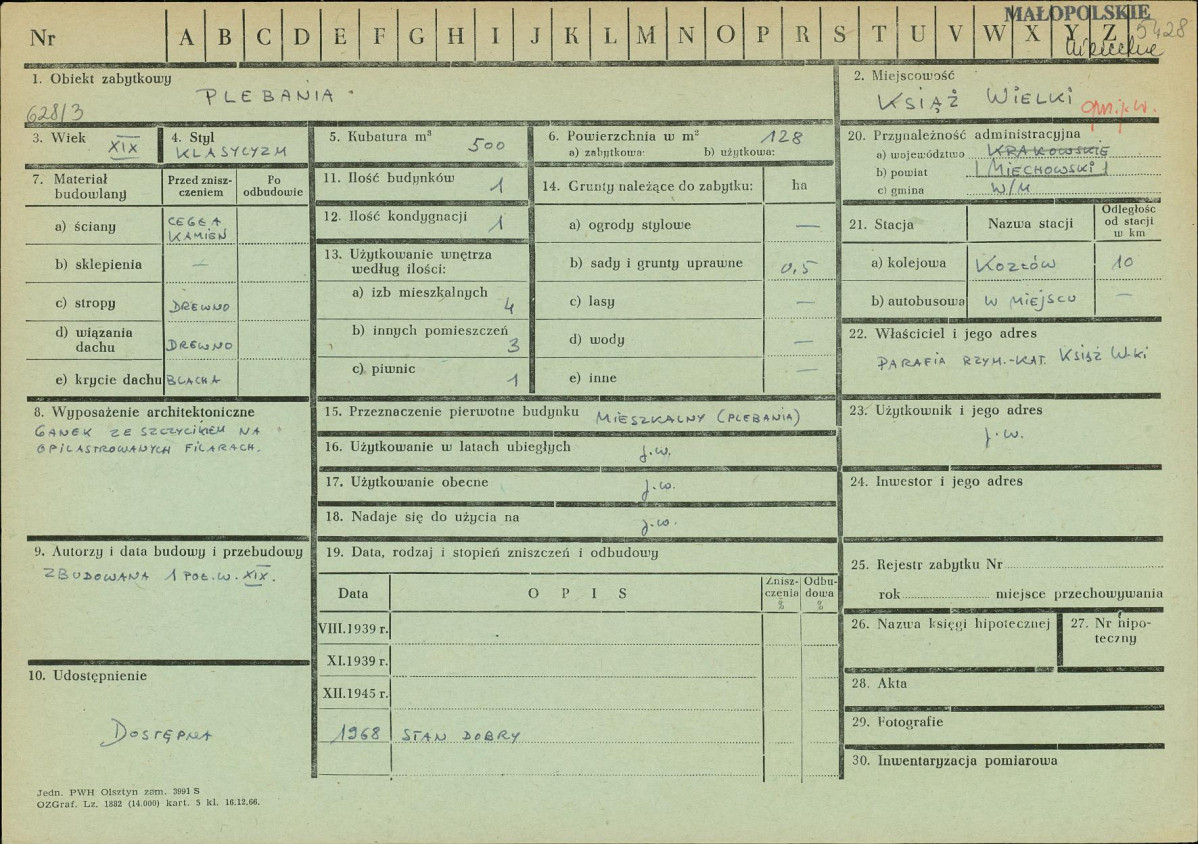 MAŁOPOLSKIE
Nr A B C D E F G H I J K L M N O P R S T U V W X Y Z 5428
1. Obiekt zabytkowy
PLEBANIA
628/3
2. Miejscowość
KSIĄŻ WIELKI
3. Wiek
XIX
4. Styl
KLASYCYZM
5. Kubatura m³
500
6. Powierzchnia w m²
128
a) zabytkowa: b) użytkowa:
7. Materiał budowlany
Przed znisz-
czeniem
Po
odbudowie
a) ściany
CEGŁA
KAMIEŃ
b) sklepienia —
c) stropy DREWNO
d) wiązania
dachu DREWNO
e) krycie dachu BLACHA
8. Wyposażenie architektoniczne
GANEK ZE SZCZYCIKIEM NA
OPILASTROWANYCH FILARACH.
9. Autorzy i data budowy i przebudowy
ZBUDOWANA 1 POŁ. W. XIX.
10. Udostępnienie
DOSTĘPNA
Jedn. PWH Olsztyn zam. 3991 S
OZGraf. Lz. 1882 (14.000) kart. 5 kl. 16.12.66.
11. Ilość budynków 1
12. Ilość kondygnacji 1
13. Użytkowanie wnętrza
według ilości:
a) izb mieszkalnych
4
b) innych pomieszczeń
3
c) piwnic
1
14. Grunty należące do zabytku: ha
a) ogrody stylowe —
b) sady i grunty uprawne 0,5
c) lasy —
d) wody —
e) inne —
15. Przeznaczenie pierwotne budynku MIESZKALNY (PLEBANIA)
16. Użytkowanie w latach ubiegłych j.w.
17. Użytkowanie obecne j.w.
18. Nadaje się do użycia na j.w.
19. Data, rodzaj i stopień zniszczeń i odbudowy
Data OPIS
Znisz-
czenia
%
Odbu-
dowa
%
VIII.1939 r.
XI.1939 r.
XII.1945 r.
1968 STAN DOBRY
20. Przynależność administracyjna
a) województwo KRAKOWSKIE
b) powiat MIECHOWSKI
c) gmina W/M
21. Stacja Nazwa stacji
Odległość
od stacji
w km
a) kolejowa KOZŁÓW 10
b) autobusowa W MIEJSCU —
22. Właściciel i jego adres
PARAFIA RZYM.-KAT. KSIĄŻ W-KI
23. Użytkownik i jego adres
j.w.
24. Inwestor i jego adres
25. Rejestr zabytku Nr
rok miejsce przechowywania
26. Nazwa księgi hipotecznej
27. Nr hipo-
teczny
28. Akta
29. Fotografie
30. Inwentaryzacja pomiarowa